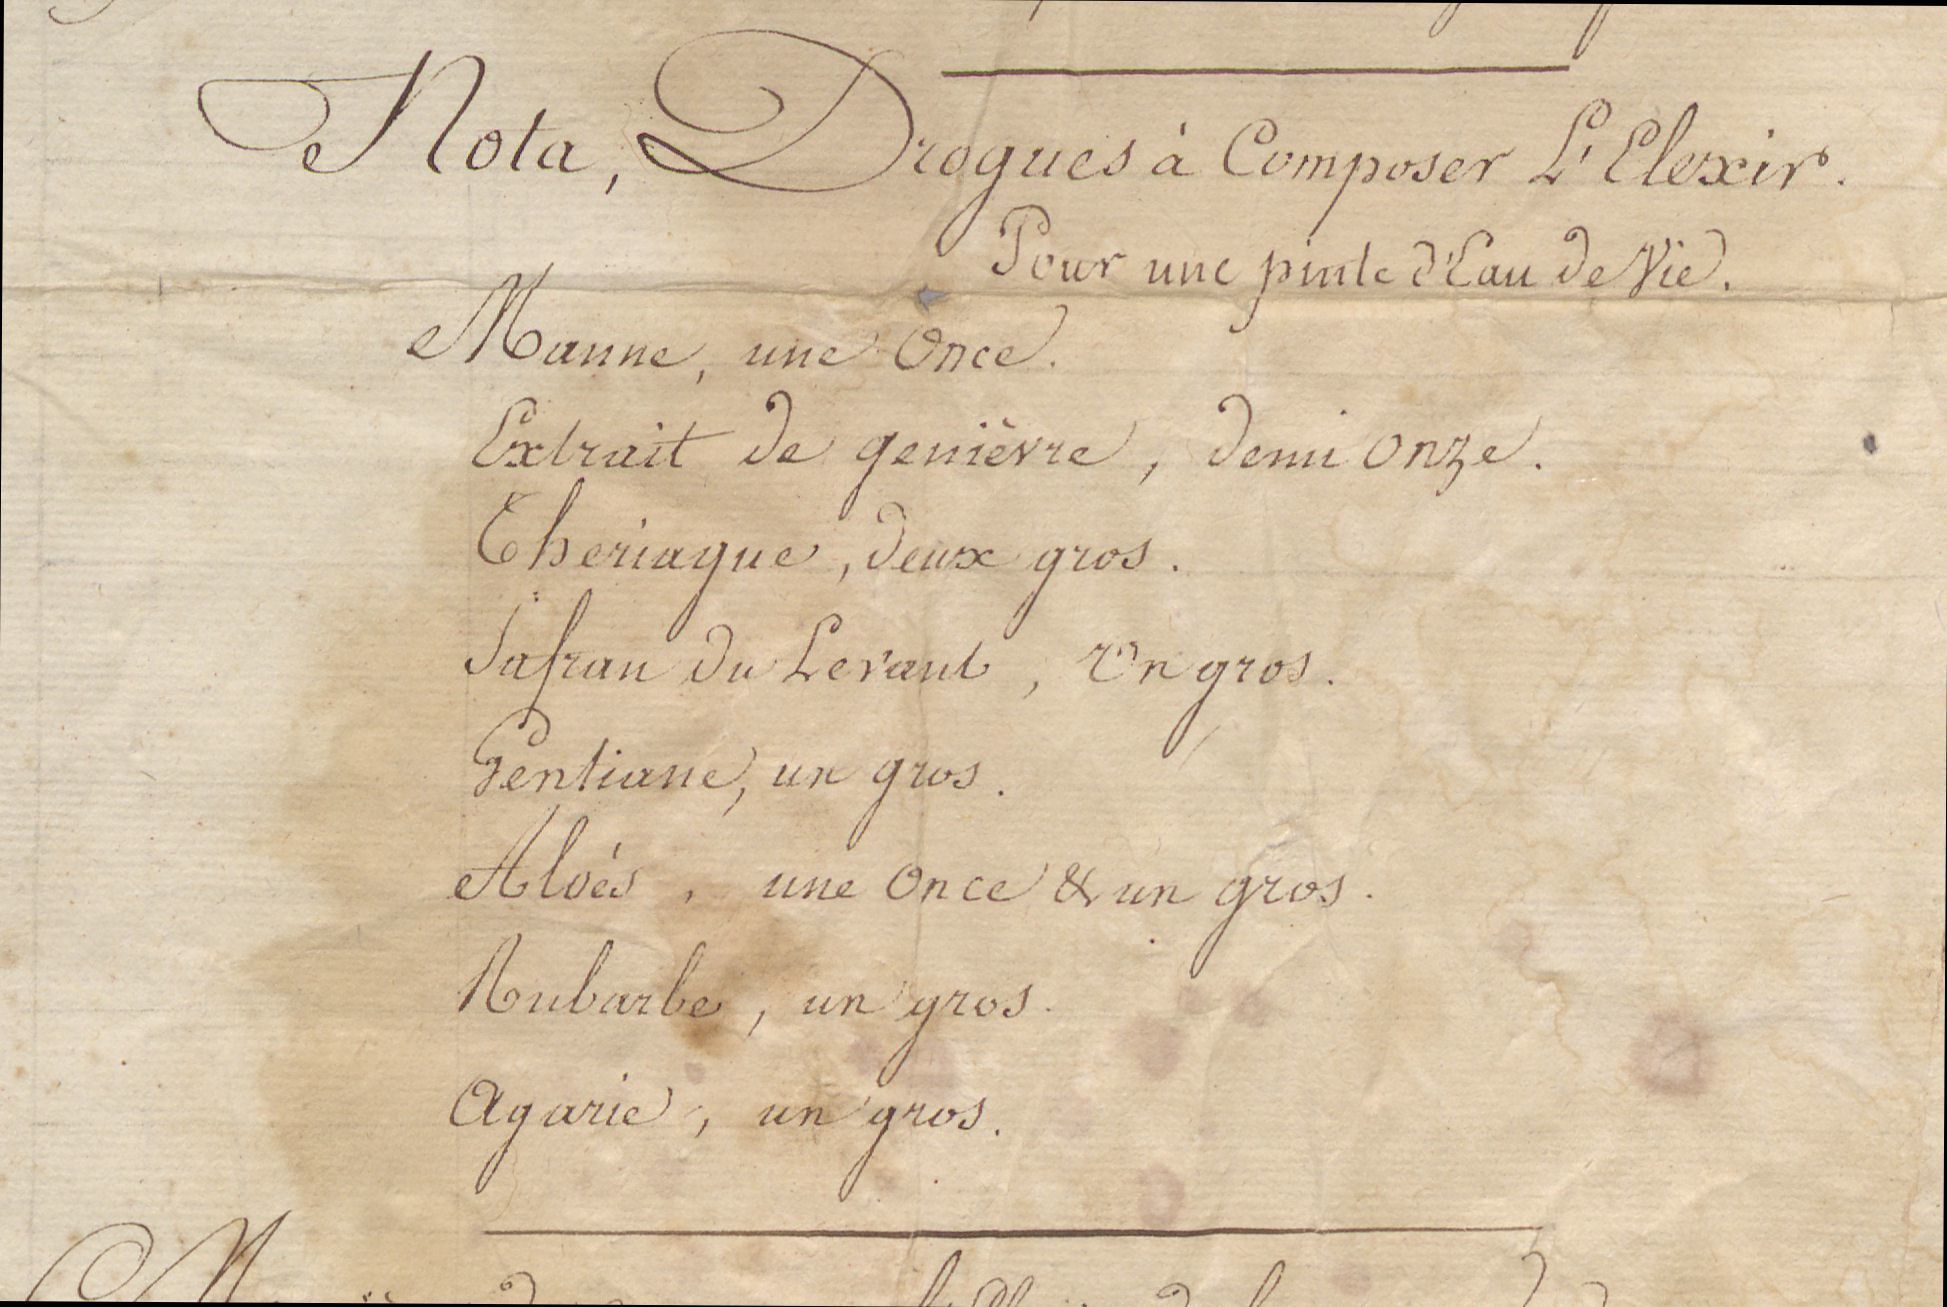 Nota, Drogues à Composer L'Elexir.
Pour une pinte d'Eau de Vie.
Manne, une Once.
Extrait de genièvre, demi onze.
Theriaque, deux gros.
Safran du Levant, Un gros.
Gentiane, un gros.
Aloés, une once & un gros.
Rubarbe, un gros.
Agaric, un gros.